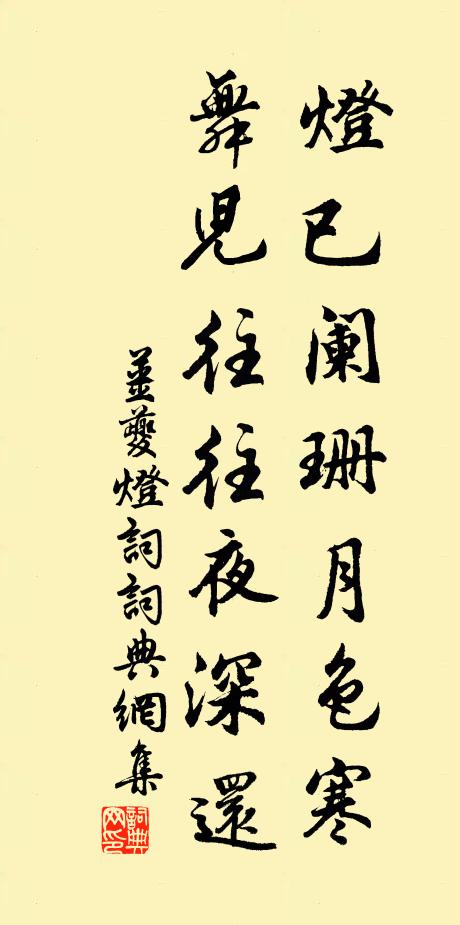 燈已阑珊月色寒
舞児往往夜深還
姜夔燈詞詞典網集
詞典网印